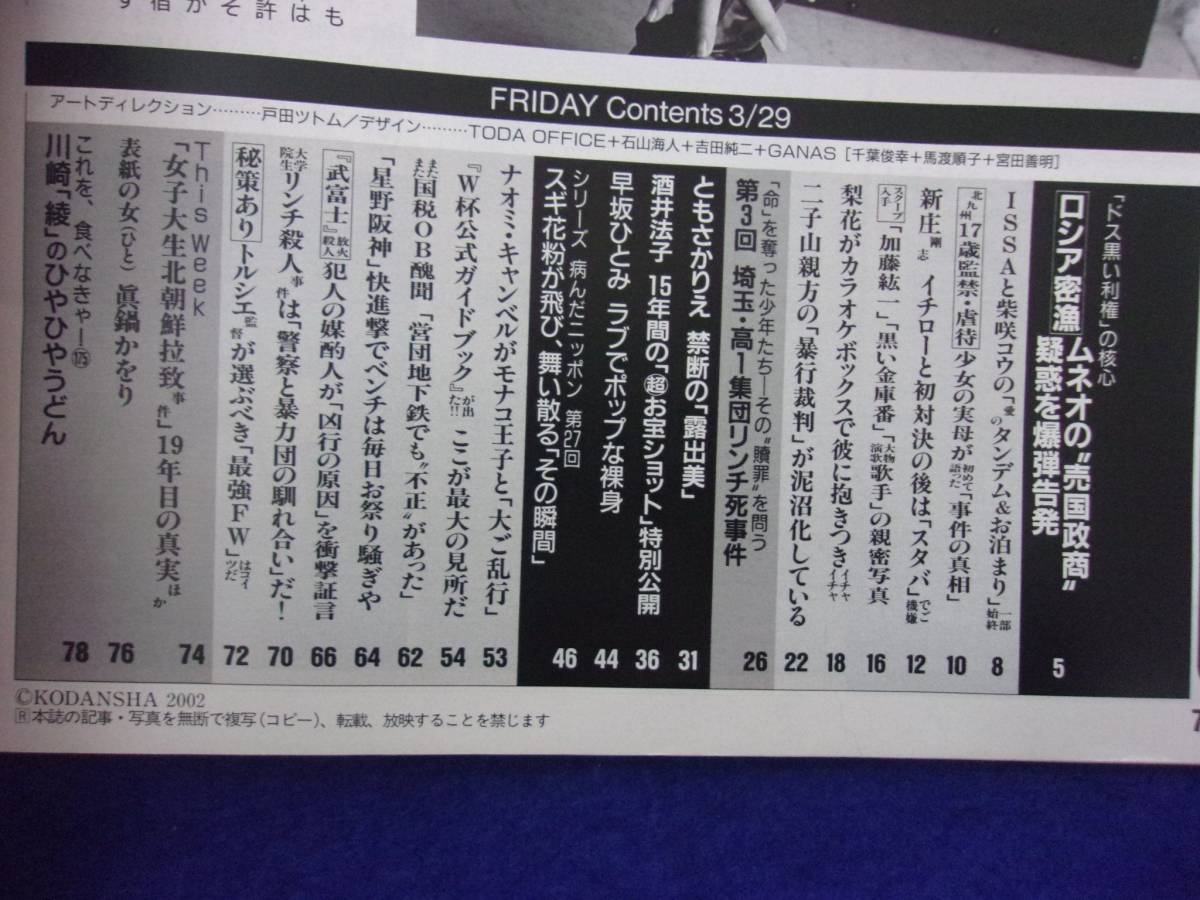 も
は
許
そ
が
宿
す
FRIDAY Contents 3/29
アートディレクション………戸田ツトム／デザイン………TODA OFFICE+石山海人+吉田純二+GANAS［千葉俊幸+馬渡順子+宮田善明］
「ドス黒い利権」の核心
ロシア密漁 ムネオの〝売国政商〟疑惑を爆弾告発 5
ISSAと柴咲コウの「愛のタンデム&お泊まり」一部始終 8
北九州17歳監禁・虐待 少女の実母が初めて語った「事件の真相」 10
新庄剛志 イチローと初対決の後は「スタバ」でご機嫌 12
スクープ入手「加藤紘一」「黒い金庫番」「大物演歌歌手」の親密写真 16
梨花がカラオケボックスで彼に抱きつきイチャイチャ 18
二子山親方の「暴行裁判」が泥沼化している 22
「命」を奪った少年たち―その〝贖罪〟を問う
第3回 埼玉・高一集団リンチ死事件 26
ともさかりえ 禁断の「露出美」 31
酒井法子 15年間の「超お宝ショット」特別公開 36
早坂ひとみ ラブでポップな裸身 44
シリーズ 病んだニッポン 第27回
スギ花粉が飛び、舞い散る「その瞬間」 46
ナオミ・キャンベルがモナコ王子と「大ご乱行」 53
『W杯公式ガイドブック』が出た!! ここが最大の見所だ 54
またまた国税OB醜聞「営団地下鉄でも〝不正〟があった」 62
「星野阪神」快進撃でベンチは毎日お祭り騒ぎや 64
『武富士』放火殺人 犯人の媒酌人が「凶行の原因」を衝撃証言 66
大学院生リンチ殺人事件は「警察と暴力団の馴れ合い」だ！ 70
秘策あり トルシエ監督が選ぶべき「最強FW」はコイツだ 72
This Week
「女子大生北朝鮮拉致事件」19年目の真実ほか 74
表紙の女(ひと) 眞鍋かをり 76
これを、食べなきゃー175
川崎「綾」のひやひやうどん 78
©KODANSHA 2002
R本誌の記事・写真を無断で複写(コピー)、転載、放映することを禁じます
7